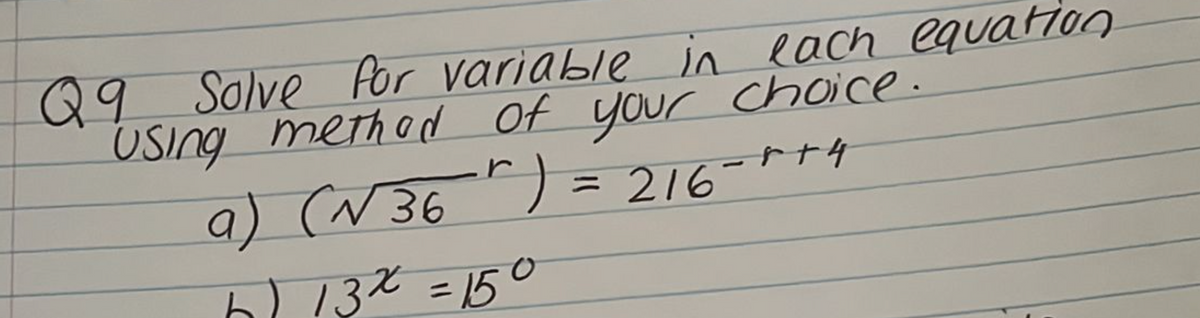 Q9 Solve for variable in each equation
using method of your choice.
a) (√36 ʳ) = 216⁻ʳ⁺⁴
b) 13ˣ = 15⁰